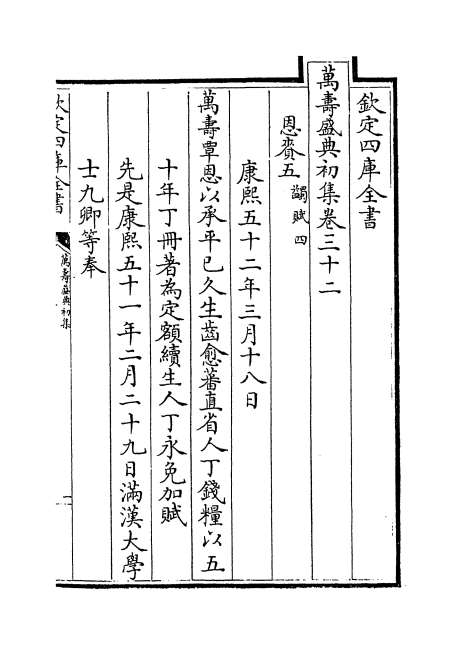 欽定四庫全書
萬壽盛典初集卷三十二
恩賚五 蠲賦四
康熙五十二年三月十八日
萬壽覃恩以承平已久生齒愈蕃直省人丁錢糧以五
十年丁冊著為定額續生人丁永免加賦
先是康熙五十一年二月二十九日滿漢大學
士九卿等奉
欽定四庫全書
萬壽盛典初集
一